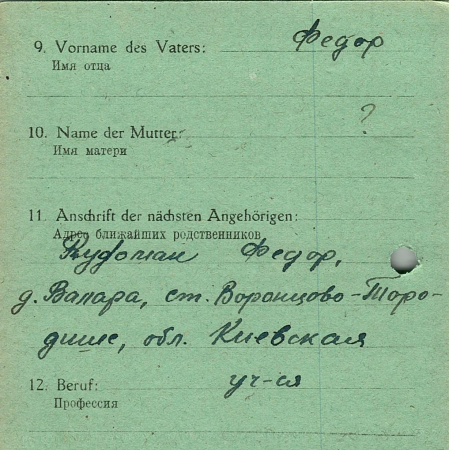 9. Vorname des Vaters: Федор
Имя отца
?
10. Name der Mutter:
Имя матери
11. Anschrift der nächsten Angehörigen:
Адрес ближайших родственников
Федор,
д. Валара, ст. Воронцово-Горо-
дище, обл. Киевская
12. Beruf: уч-ся
Профессия